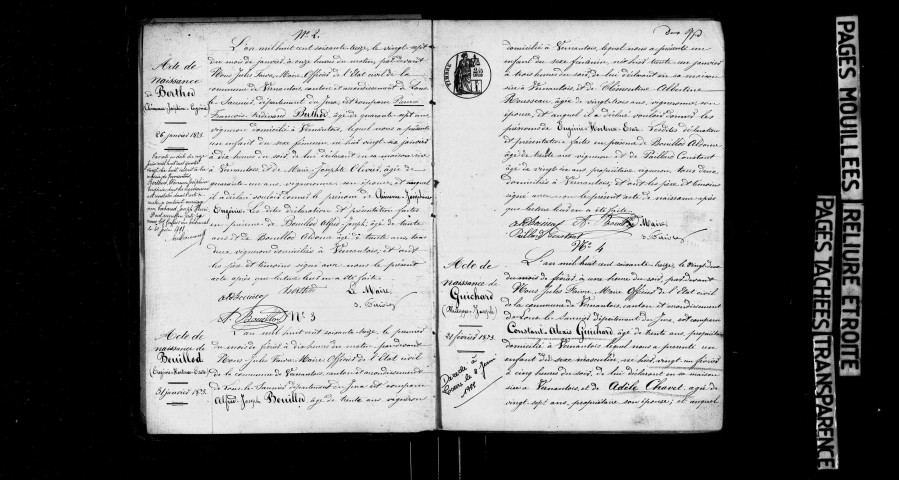 N° 2.
Acte de
naissance
de Berthod
26 janvier 1873.
L'an mil huit cent soixante treize, le vingt sept
du mois de janvier, à onze heures du matin, par devant
Nous Jules Favre, Maire, Officier de l'Etat civil de la
commune de Vernantois, canton et arrondissement de Lons
le Saunier, département du Jura, est comparu
François Ferdinand Berthod, âgé de quarante sept ans
vigneron domicilié à Vernantois, lequel nous a présenté
un enfant du sexe féminin, né hier vingt six janvier
à dix heures du soir, de lui déclarant en sa maison sise
à Vernantois et de Marie Josephte Olivier, âgée de
quarante un ans, vigneronne, son épouse, et auquel
il a déclaré vouloir donner le prénom de Clémence Joséphine
Eugénie. Les dites déclaration et présentation faites
en présence de Bouillod Alfred Joseph, âgé de trente
ans et de Bouillod Aldone âgé de trente ans tous
deux vignerons domiciliés à Vernantois; et ont
les père et témoins signé avec nous le présent
acte après que lecture leur en a été faite.
Berthod
Le Maire
J. Favre
A. Bouillod
N° 3
Acte de
naissance de
Bouillod
31 janvier 1873.
L'an mil huit cent soixante treize, le premier
du mois de février à dix heures du matin, par devant
Nous Jules Favre, Maire, Officier de l'Etat civil
de la commune de Vernantois, canton et arrondissement
de Lons le Saunier département du Jura est comparu
Alfred Joseph Bouillod âgé de trente ans vigneron
TIMBRE
domicilié à Vernantois, lequel nous a présenté un
enfant du sexe féminin, né hier trente un janvier
à trois heures du soir, de lui déclarant en sa maison
sise à Vernantois, et de Clémentine Albertine
Rousseau, âgée de vingt trois ans, vigneronne, son
épouse, et auquel il a déclaré vouloir donner les
prénoms de Eugène Ventura Esor. Les dites déclaration
et présentation faites en présence de Bouillod Aldone
âgé de trente ans vigneron et de Paillard Constant
âgé de vingt six ans, propriétaire vigneron tous deux
domiciliés à Vernantois, et ont les père et témoins
signé avec nous le présent acte de naissance après
que lecture leur en a été faite.
A. Bouillod
Le Maire
J. Favre
N° 4
Acte de
naissance de
Guichard
21 février 1873.
L'an mil huit cent soixante treize, le vingt deux
du mois de février, à une heure du soir, par devant
Nous Jules Favre, Maire, Officier de l'Etat civil
de la commune de Vernantois, canton et arrondissement
de Lons le Saunier département du Jura, est comparu
Constant Alexis Guichard âgé de trente ans, propriétaire
domicilié à Vernantois lequel nous a présenté un
enfant du sexe masculin, né hier, vingt un février
à cinq heures du soir, de lui déclarant en sa maison
sise à Vernantois, et de Adèle Chavet, âgée de
vingt sept ans, propriétaire son épouse; et auquel
PAGES MOUILLEES RELIURE ETROITE
PAGES TACHEES TRANSPARENCE